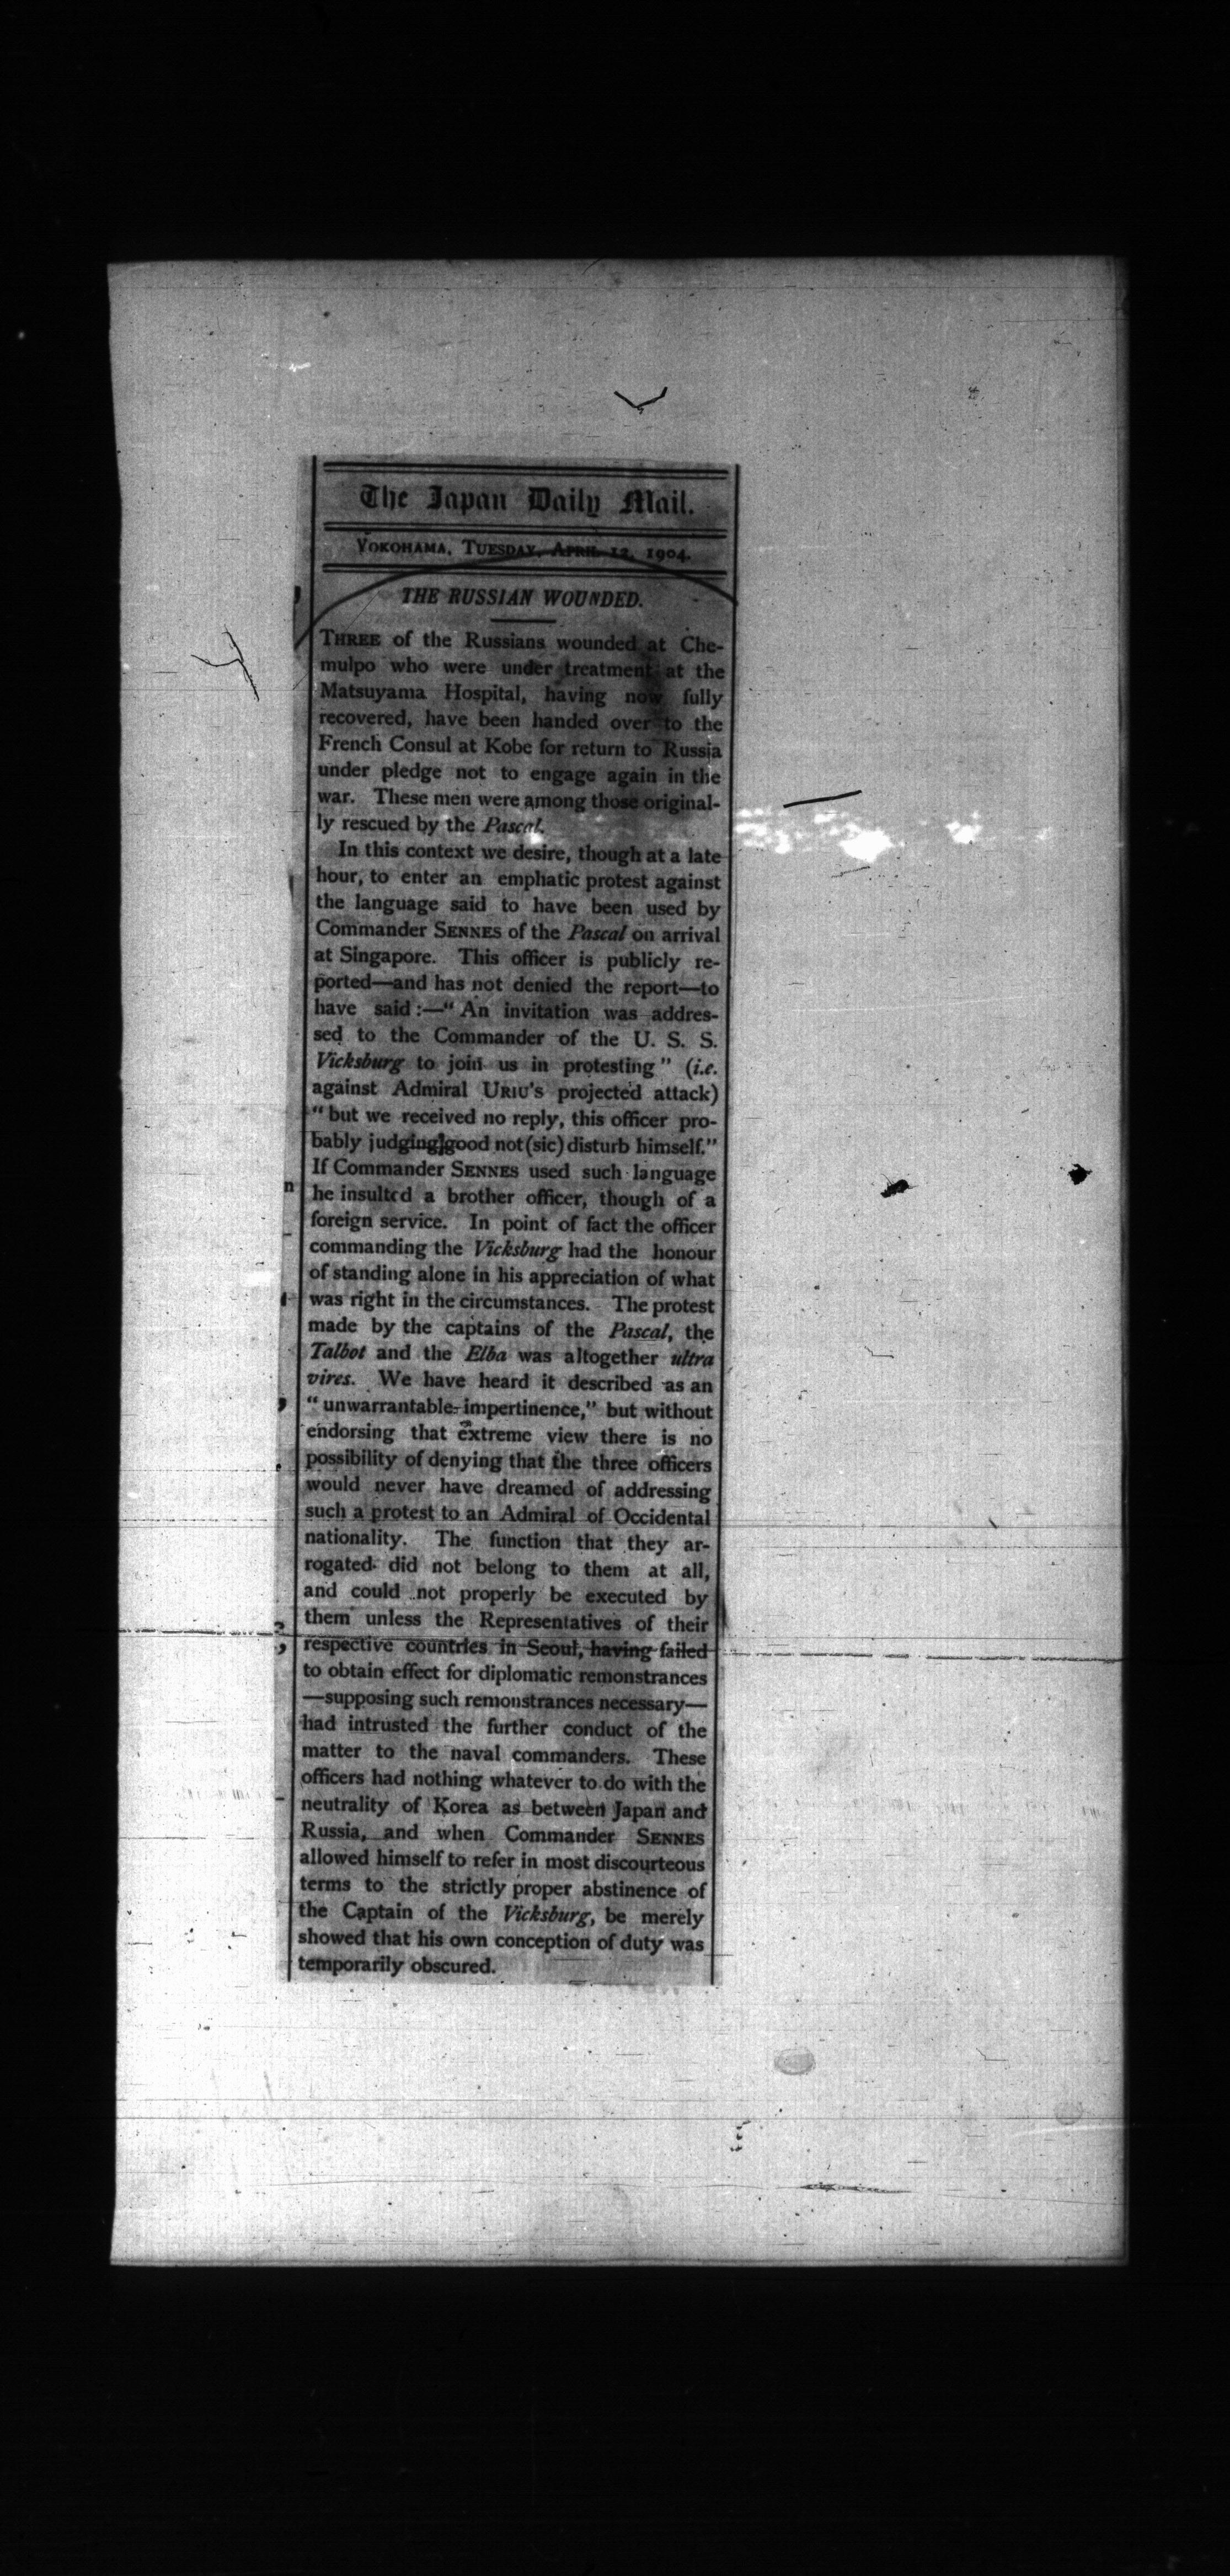 The Japan Daily Mail.
YOKOHAMA, TUESDAY, APRIL 12, 1904.
THE RUSSIAN WOUNDED.
THREE of the Russians wounded at Che-
mulpo who were under treatment at the
Matsuyama Hospital, having now fully
recovered, have been handed over to the
French Consul at Kobe for return to Russia
under pledge not to engage again in the
war. These men were among those original-
ly rescued by the Pascal.
In this context we desire, though at a late
hour, to enter an emphatic protest against
the language said to have been used by
Commander SENNES of the Pascal on arrival
at Singapore. This officer is publicly re-
ported—and has not denied the report—to
have said:—“An invitation was addres-
sed to the Commander of the U. S. S.
Vicksburg to join us in protesting” (i.e.
against Admiral URIU'S projected attack)
“but we received no reply, this officer pro-
bably judging good not (sic) disturb himself.”
If Commander SENNES used such language
he insulted a brother officer, though of a
foreign service. In point of fact the officer
commanding the Vicksburg had the honour
of standing alone in his appreciation of what
was right in the circumstances. The protest
made by the captains of the Pascal, the
Talbot and the Elba was altogether ultra
vires. We have heard it described as an
“unwarrantable impertinence,” but without
endorsing that extreme view there is no
possibility of denying that the three officers
would never have dreamed of addressing
such a protest to an Admiral of Occidental
nationality. The function that they ar-
rogated did not belong to them at all,
and could not properly be executed by
them unless the Representatives of their
respective countries in Seoul, having failed
to obtain effect for diplomatic remonstrances
—supposing such remonstrances necessary—
had intrusted the further conduct of the
matter to the naval commanders. These
officers had nothing whatever to do with the
neutrality of Korea as between Japan and
Russia, and when Commander SENNES
allowed himself to refer in most discourteous
terms to the strictly proper abstinence of
the Captain of the Vicksburg, be merely
showed that his own conception of duty was
temporarily obscured.